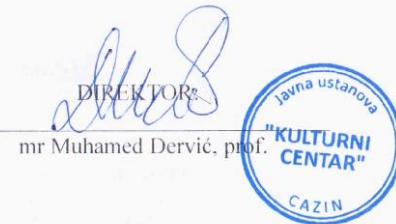 DIREKTOR:
mr Muhamed Dervić, prof.
Javna ustanova
"KULTURNI
CENTAR"
CAZIN